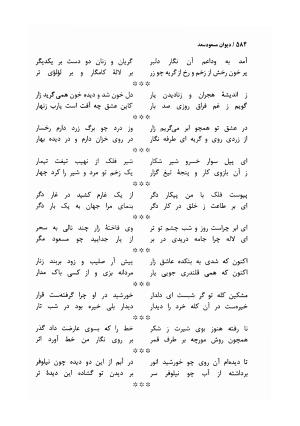 ۵۸۴ / دیوان مسعودسعد
آمد به وداعم آن نگار دلبر گریان و زنان دو دست بر یکدیگر
پر خون رخش از زخم و رخ از گریه چو زر بر لالهٔ کامگار و بر لؤلؤی تر
***
ز اندیشهٔ هجران و زنادیدن یار دل خون شد و دیده خون همی گرید زار
گویم ز غم فراق روزی صد بار کاین عشق چه آفت است یارب زنهار
***
در عشق تو همچو ابر می‌گریم زار وز درد چو برگ زرد دارم رخسار
از زردی روی و گریه ای طرفه نگار در روی خزان دارم و در دیده بهار
***
ای پیل سوار خسرو شیر شکار شیر فلک از نهیب تیغت تیمار
ز آن بازوی کار و پنجهٔ تیغ گزار یک زخم تو مرد و شیر را کشت چهار
***
پیوست فلک با من پیکار دگر از یک غارم کشید در غار دگر
ای بر طاعت ز خلق در کار دگر بنمای مرا جهان به یک بار دگر
***
ای ابر چراست روز و شب چشم تو تر وی فاختهٔ زار چند نالی به سحر
ای لاله چرا جامه دریدی در بر از یار جدایید چو مسعود مگر
***
اکنون که شدی به بنکده عاشق زار پیش آر صلیب و زود بربند زنار
اکنون که همی قلندری جویی یار مردانه بزی و از کسی باک مدار
***
مشکین کله تو گر شبست ای دلدار خورشید در او چرا گرفته‌ست قرار
خیره‌ست در آن کله خرد را دیدار دیدار بلی خیره بود در شب تار
***
نا رفته هنوز بوی شیرت ز شکر خط را که بسوی عارضت داد گذر
همچون روش مورچه بر طرف قمر بر روی نگار من خط آورد اثر
***
تا دیده‌ام آن روی چو خورشید انور در آبم از این دو دیده چون نیلوفر
برداشته از آب چو نیلوفر سر بر دیدن تو گشاده این دیدهٔ تر
***